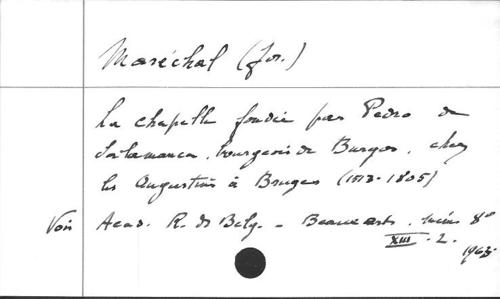 Maréchal (Jos.)
La chapelle fondée par Pedro de
Salamanca, bourgeois de Burgos, chez
les Augustins à Bruges (1513-1805)
Voir Acad. R. de Belg. - Beaux arts. mém. 8°
XIII. 2.
1963